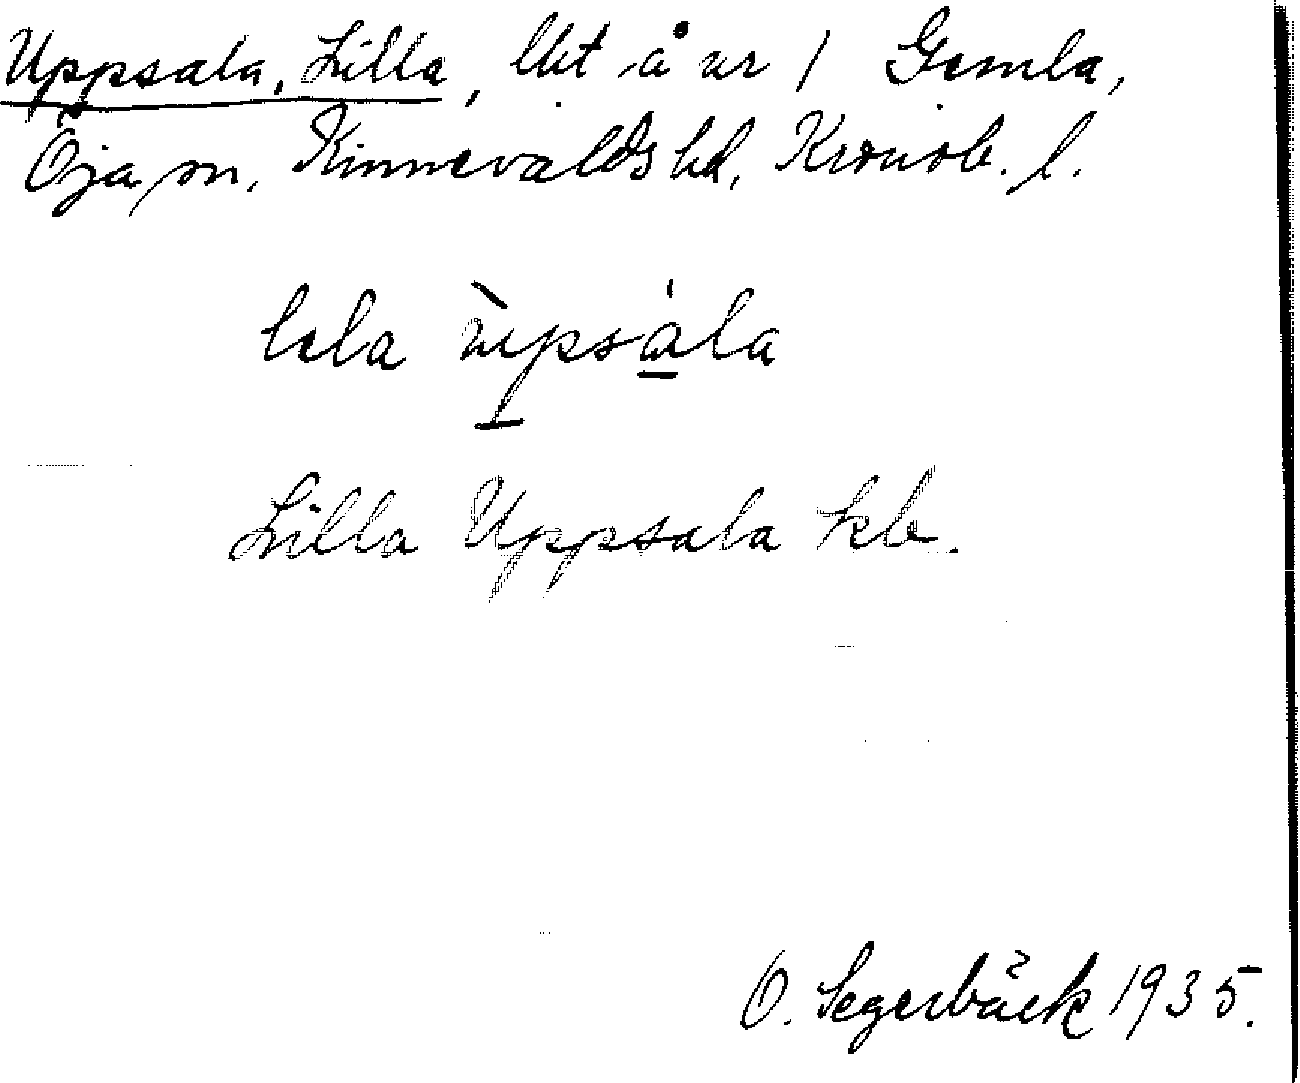 Uppsala, Lilla, lht å nr 1 Gemla,
Öja sn, Kinnevalds hd, Kronob. l.
lela ùpsála
Lilla Uppsala kb.
O. Segerbäck 1935.